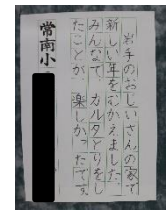 岩手のおじいさんの家で
新しい年をむかえました。
みんなで、カルタとりをし
たことが、楽しかったです。
常南小